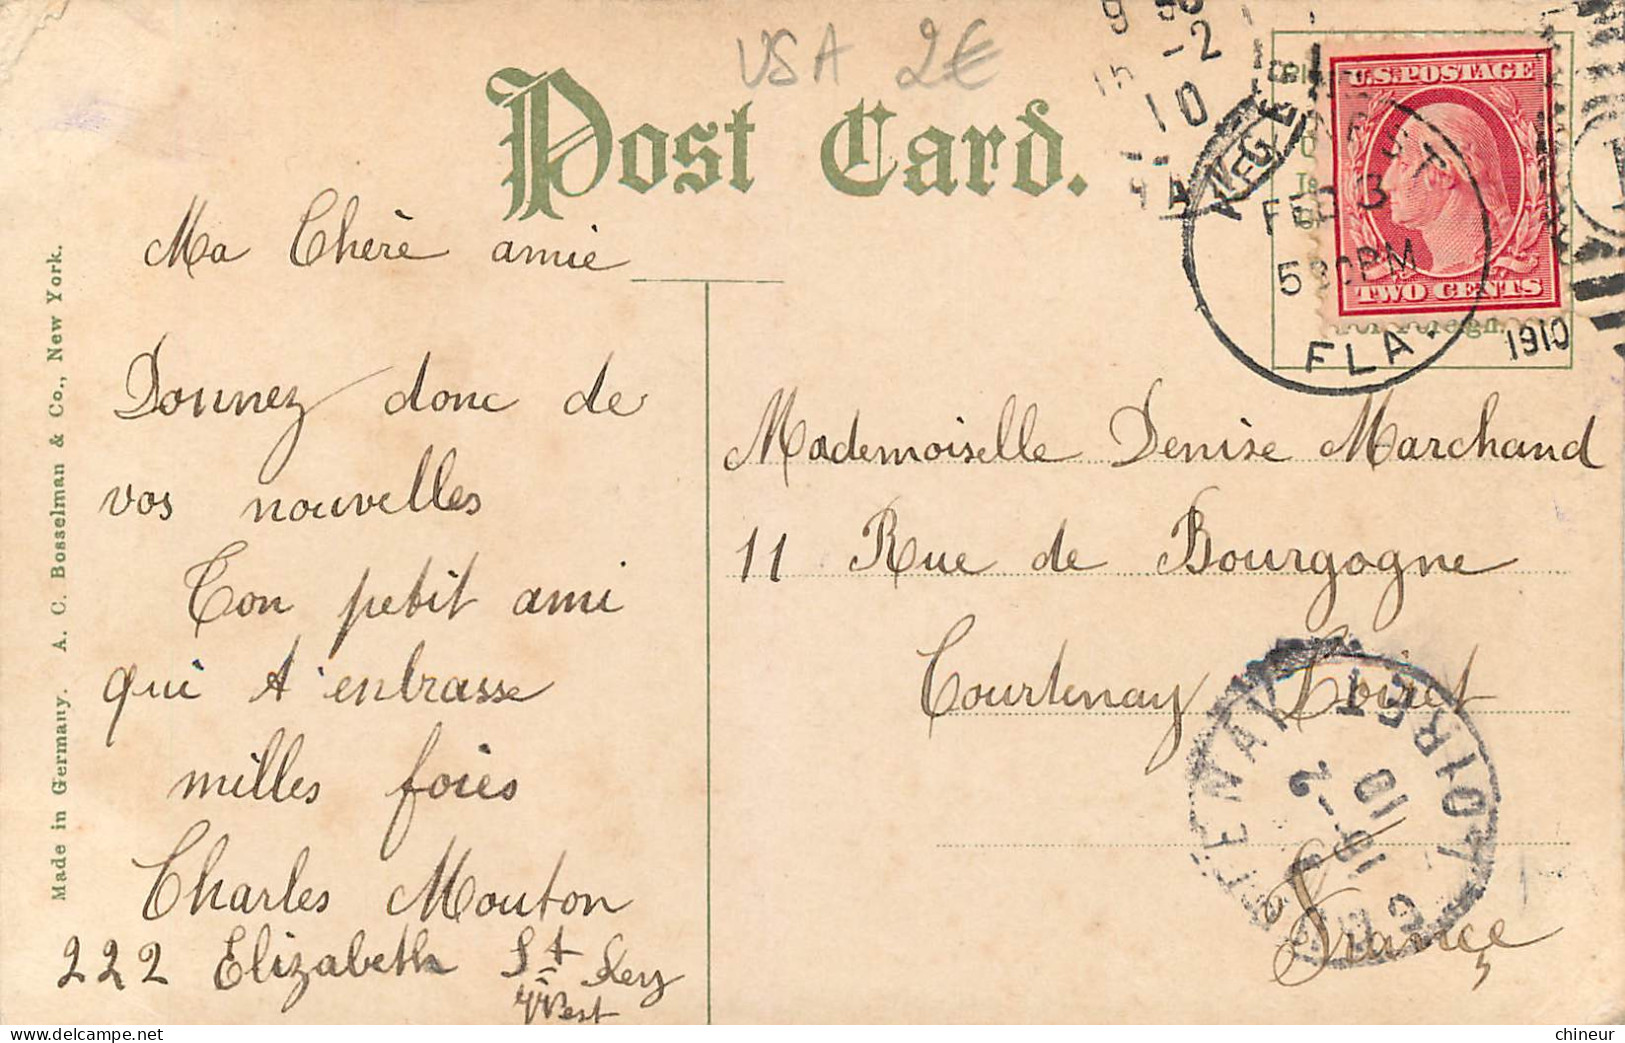 USA 2€
Post Card.
Ma Chère amie
Donnez donc de
vos nouvelles
Ton petit ami
qui t'enbrasse
milles foies
Charles Mouton
222 Elizabeth St Key
West
Mademoiselle Denise Marchand
11 Rue de Bourgogne
Courtenay Loiret
France
U.S. POSTAGE
TWO CENTS
FEB 3
5 30 PM
FLA.
1910
LOIRET
16-2
10
Made in Germany. A. C. Bosselman & Co., New York.
chineur